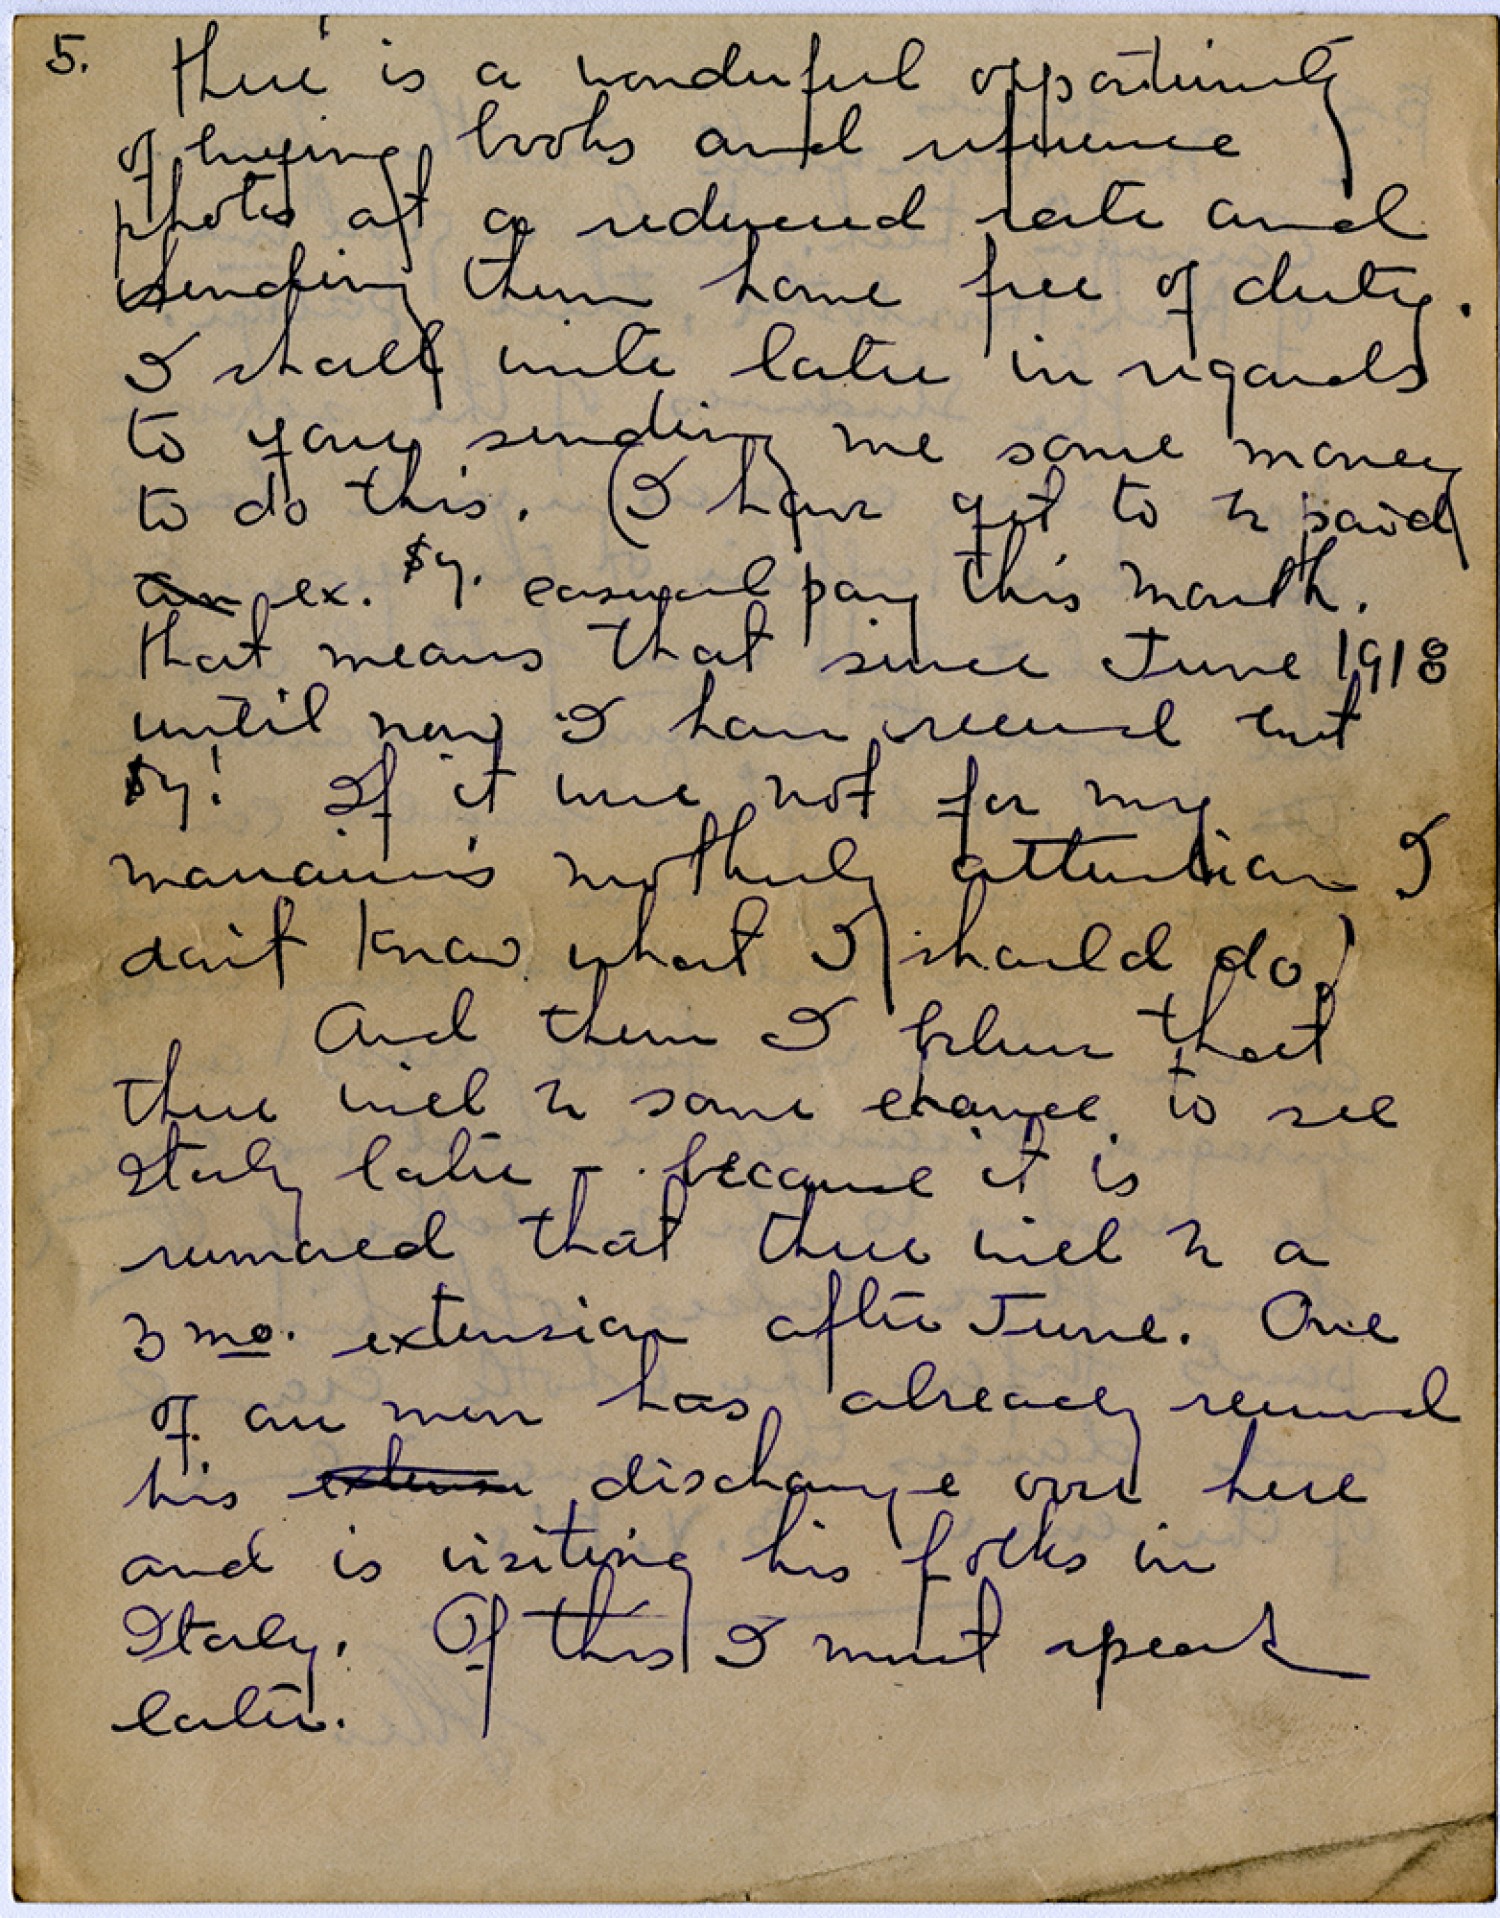 5. There is a wonderful opportunity
of buying books and reference
photos at a reduced rate and
sending them home free of duty.
I shall write later in regards
to your sending me some money
to do this. (I have got to be paid
an ex. $7. casual pay this month.
That means that since June 1918
until now I have received but
$7! If it were not for my
mamam's motherly attention I
don't know what I should do.)
And then I believe that
there will be some chance to see
Italy later - because it is
rumored that there will be a
3 mo. extension after June. One
of our men has already received
his extense discharge over here
and is visiting his folks in
Italy. Of this I must speak
later.